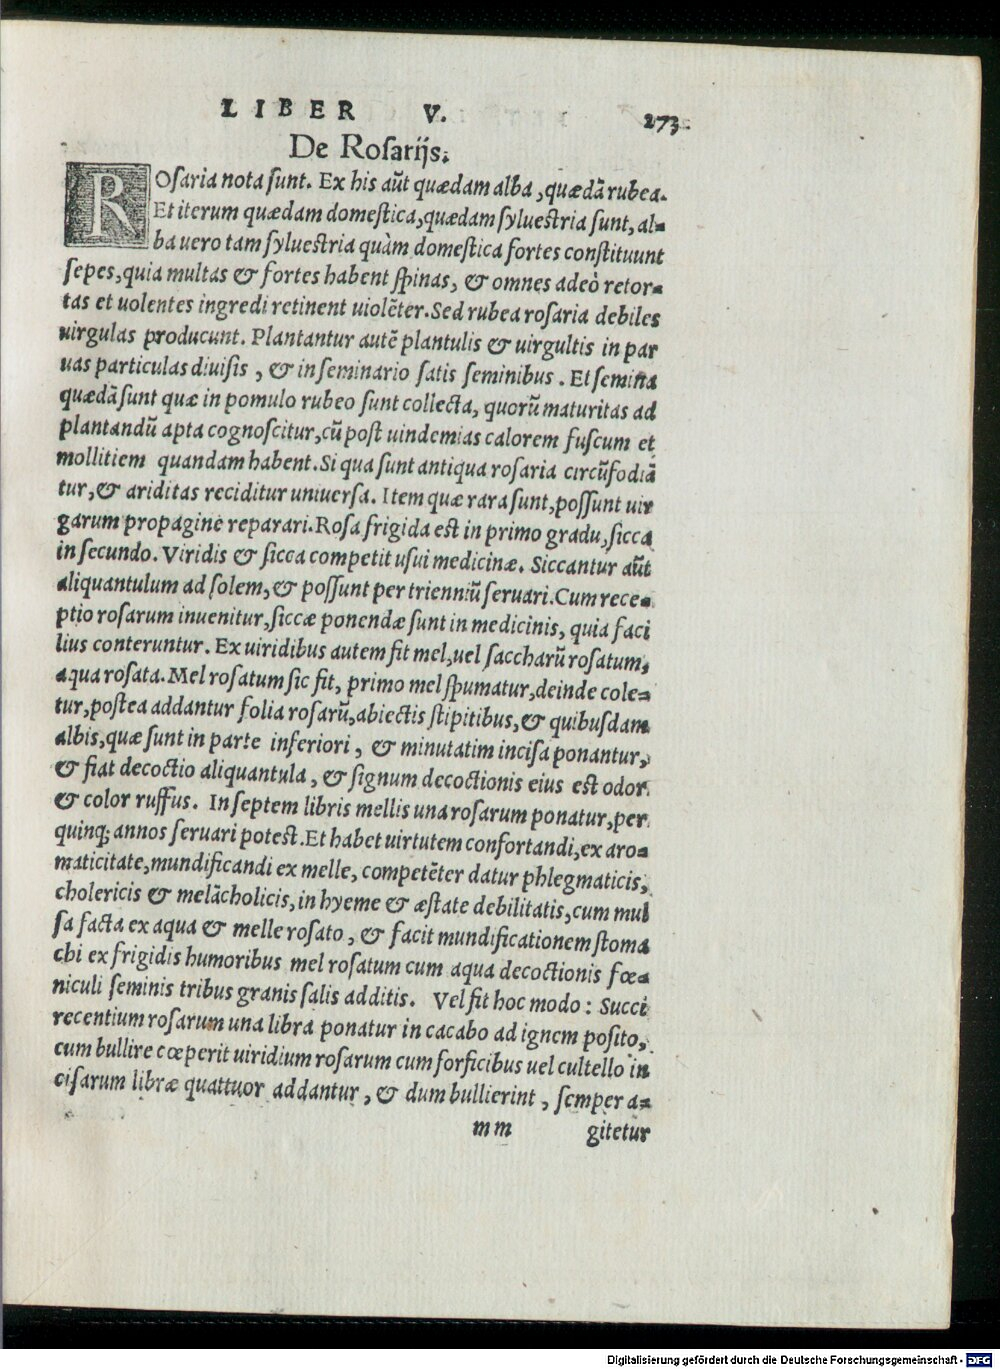 LIBER V. 273
De Rosarijs.
ROsaria nota sunt. Ex his aũt quædam alba, quædã rubea.
Et iterum quædam domestica, quædam syluestria sunt, al-
ba uero tam syluestria quàm domestica fortes constituunt
sepes, quia multas & fortes habent spinas, & omnes adeò retor-
tas et uolentes ingredi retinent uiolẽter. Sed rubea rosaria debiles
uirgulas producunt. Plantantur autẽ plantulis & uirgultis in par
uas particulas diuisis, & in seminario satis seminibus. Et semina
quædã sunt quæ in pomulo rubeo sunt collecta, quorũ maturitas ad
plantandũ apta cognoscitur, cũ post uindemias calorem fuscum et
mollitiem quandam habent. Si qua sunt antiqua rosaria circũfodiã
tur, & ariditas reciditur uniuersa. Item quæ rara sunt, possunt uir
garum propagine reparari. Rosa frigida est in primo gradu, sicca
in secundo. Viridis & sicca competit usui medicinæ. Siccantur aũt
aliquantulum ad solem, & possunt per trienniũ seruari. Cum rece-
ptio rosarum inuenitur, siccæ ponendæ sunt in medicinis, quia faci
lius conteruntur. Ex uiridibus autem fit mel, uel saccharũ rosatum,
aqua rosata. Mel rosatum sic fit, primo mel spumatur, deinde cole-
tur, postea addantur folia rosarũ, abiectis stipitibus, & quibusdam
albis, quæ sunt in parte inferiori, & minutatim incisa ponantur,
& fiat decoctio aliquantula, & signum decoctionis eius est odor
& color ruffus. In septem libris mellis una rosarum ponatur, per
quinq; annos seruari potest. Et habet uirtutem confortandi, ex aro-
maticitate, mundificandi ex melle, competẽter datur phlegmaticis,
cholericis & melãcholicis, in hyeme & æstate debilitatis, cum mul
sa facta ex aqua & melle rosato, & facit mundificationem stoma
chi ex frigidis humoribus mel rosatum cum aqua decoctionis fœ-
niculi seminis tribus granis salis additis. Vel fit hoc modo: Succi
recentium rosarum una libra ponatur in cacabo ad ignem posito,
cum bullire cœperit uiridium rosarum cum forficibus uel cultello in
cisarum libræ quattuor addantur, & dum bullierint, semper a-
mm gitetur
Digitalisierung gefördert durch die Deutsche Forschungsgemeinschaft - DFG